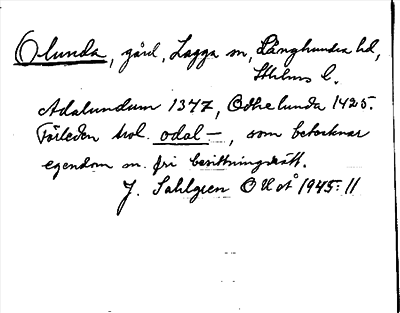 Olunda, gård, Lagga sn, Långhundra hd,
Sthlms l.
Adalundum 1347, Odhelunda 1425.
Förleden trol. odal-, som betecknar
egendom m. fri besittningsrätt.
J. Sahlgren OUÅ 1945: 11